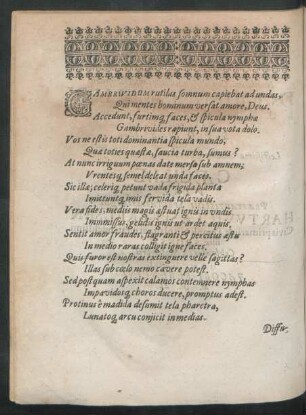 GAMBRIVIDVM rutilas somnum capiebat ad undas,
Qui mentes hominum versat amore, Deus.
Accedunt, furtimq; faces, & spicula nymphæ
Gambriviles rapiunt, in sua vota dolo.
Vos ne estis toti dominantia spicula mundo,
Qua toties quassa, saucia turba, sumus?
At nunc irriguum pœnas date mersa sub amnem;
Urentesq; semel deleat unda faces.
Sic illæ; celeriq; petunt vada frigida planta
Injiciuntq; imis fervida tela vadis.
Vera fides; medijs magis astuat ignis in undis
Immissus, gelidis ignis ut ardet aquis,
Sentit amor fraudes, flagranti & percitus æstu
In medio raras colligit igne faces.
Quis furor est nostras extinguere velle sagittas?
Illas sub cœlo nemo cavere potest.
Sed postquam aspexit calamos contemnere nymphas
Impavidosq; choros ducere, promptus adest.
Protinus è madida desumit tela pharetra,
Lunatoq; arcu conjicit in medias.
Diffu-